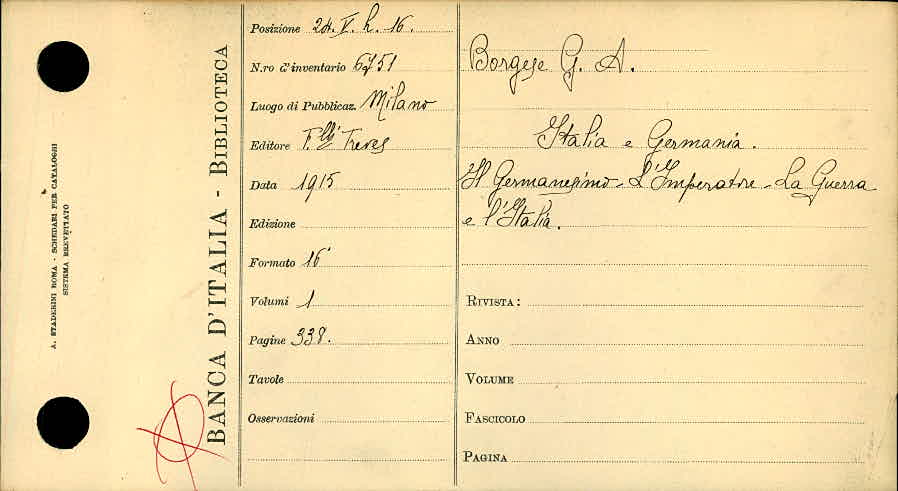 A. STADERINI ROMA - SCHEDARI PER CATALOGHI
SISTEMA BREVETTATO
BANCA D'ITALIA - BIBLIOTECA
Posizione 24. V. h. 16.
N.ro d'inventario 6751
Luogo di Pubblicaz. Milano
Editore F.lli Treves
Data 1915
Edizione
Formato 16°
Volumi 1
Pagine 338.
Tavole
Osservazioni
Borgese G. A.
Italia e Germania.
Il Germanesimo - L'Imperatore - La Guerra
e l'Italia.
RIVISTA:
ANNO
VOLUME
FASCICOLO
PAGINA